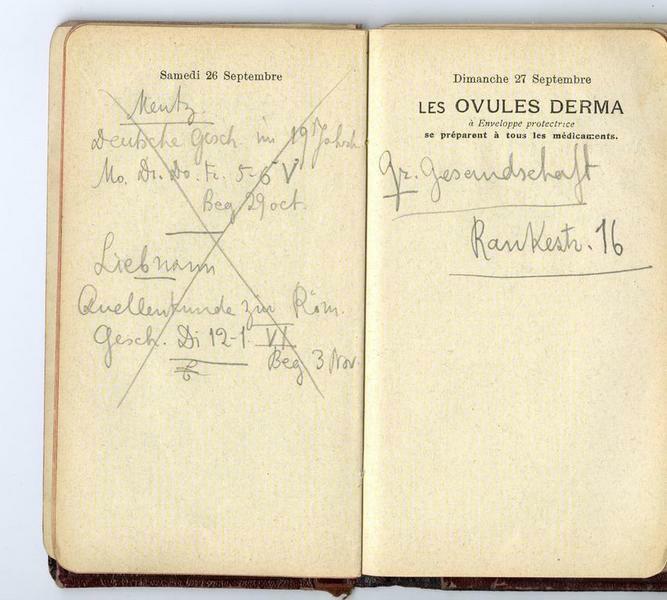 Samedi 26 Septembre
Mentz.
Deutsche Gesch. im 19 Jahrh.
Mo. Di. Do. Fr. 5-6 V
Beg 29 oct.
Liebnann
Quellenkunde zur Röm.
Gesch. Di 12-1. VI
Beg 3 Nov.
Dimanche 27 Septembre
LES OVULES DERMA
à Enveloppe protectrice
se préparent à tous les médicaments.
Gr. Gesandschaft
Rankestr. 16